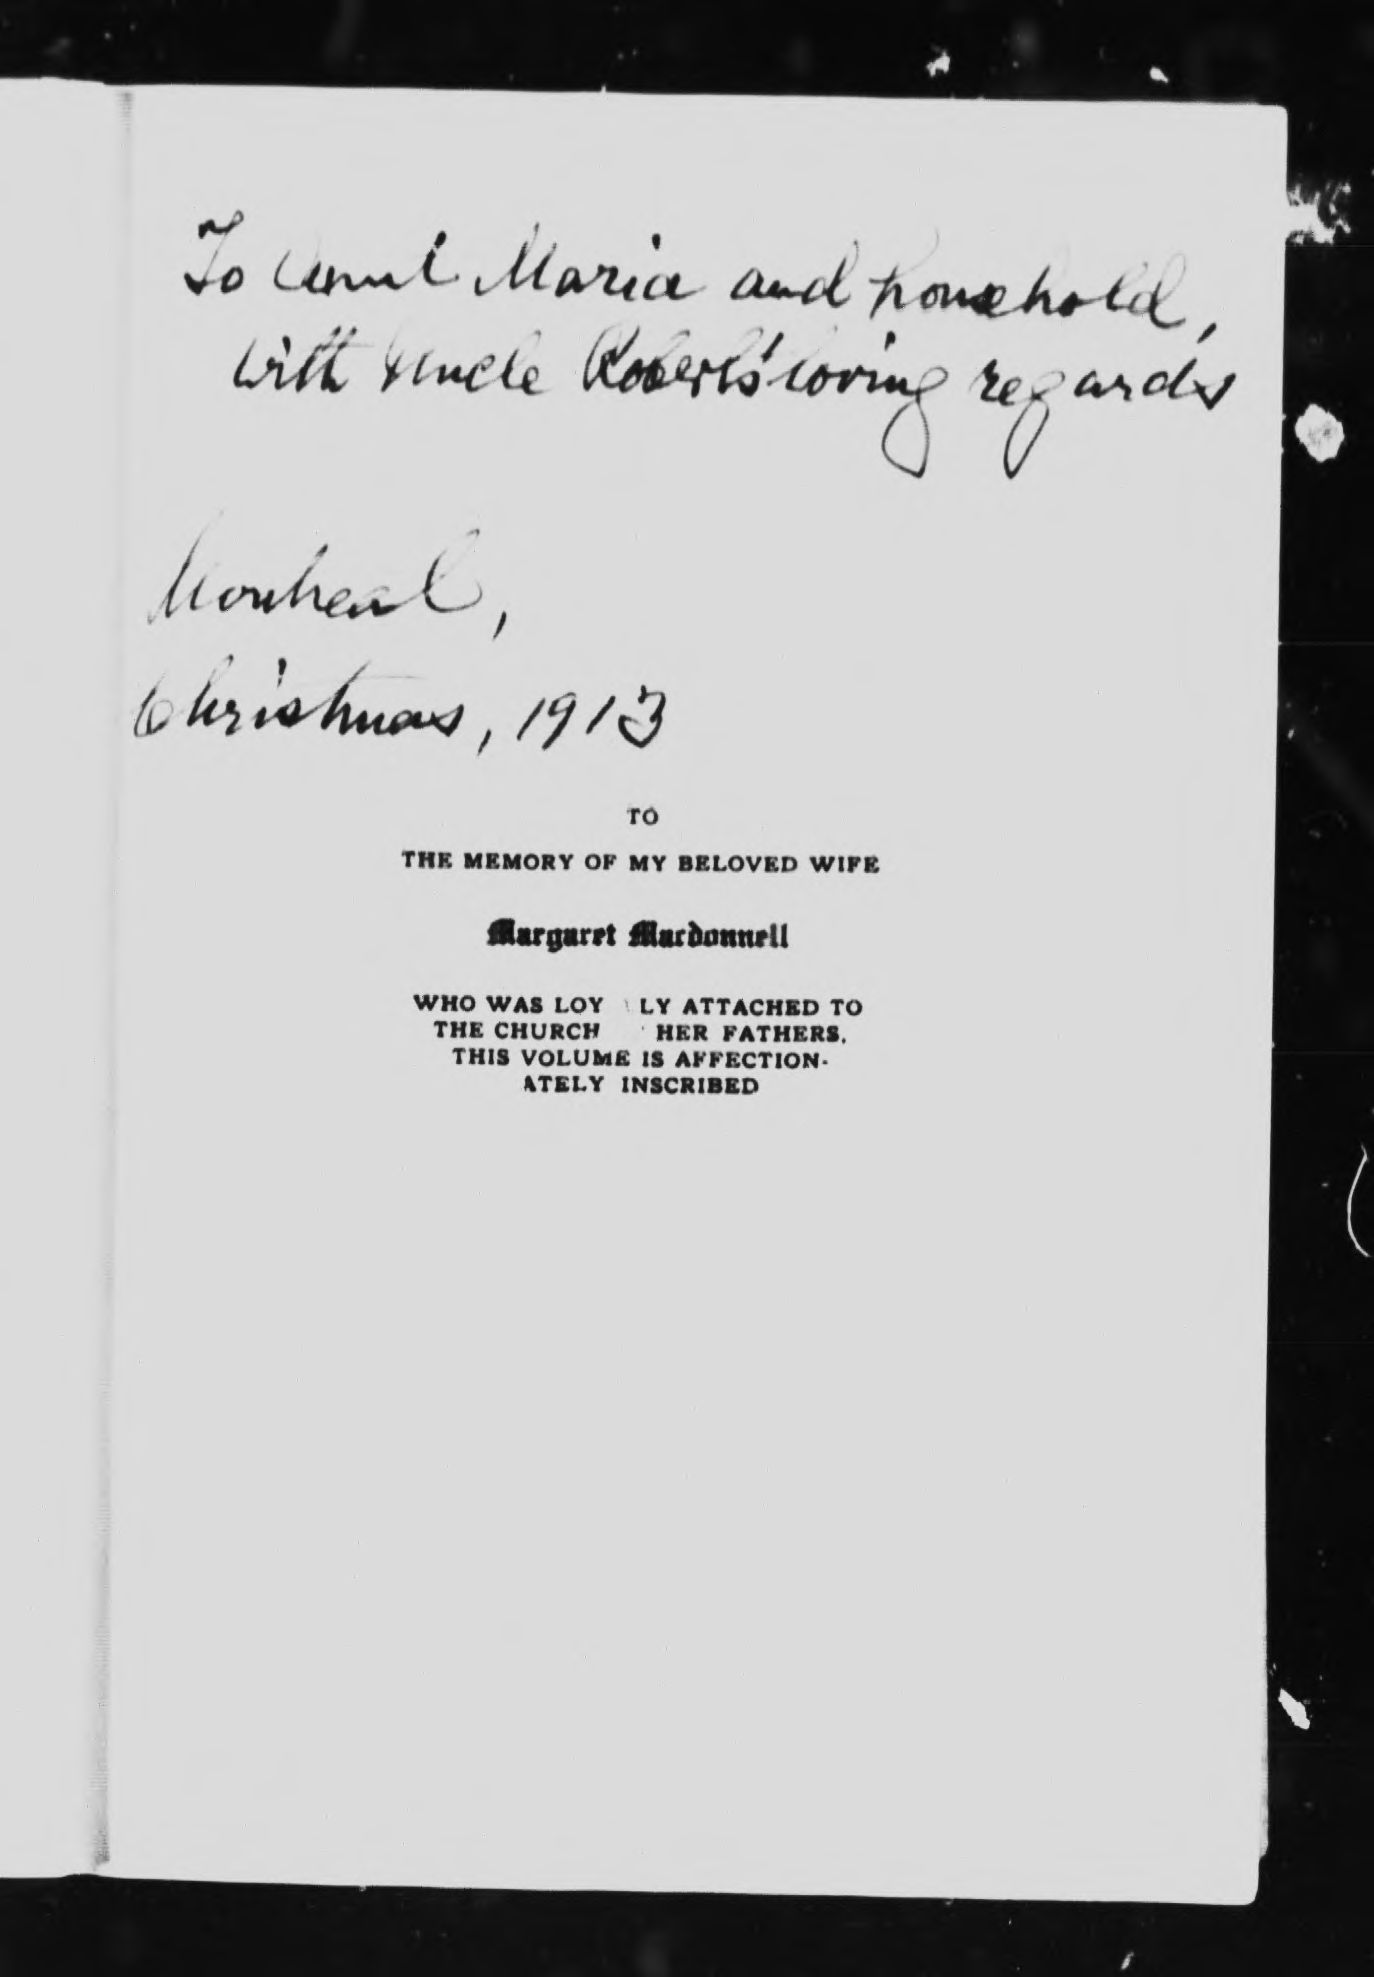 To Aunt Maria and household,
with Uncle Robert's loving regards
Montreal,
Christmas, 1913
TO
THE MEMORY OF MY BELOVED WIFE
Margaret Macdonnell
WHO WAS LOY LY ATTACHED TO
THE CHURCH HER FATHERS,
THIS VOLUME IS AFFECTION-
ATELY INSCRIBED